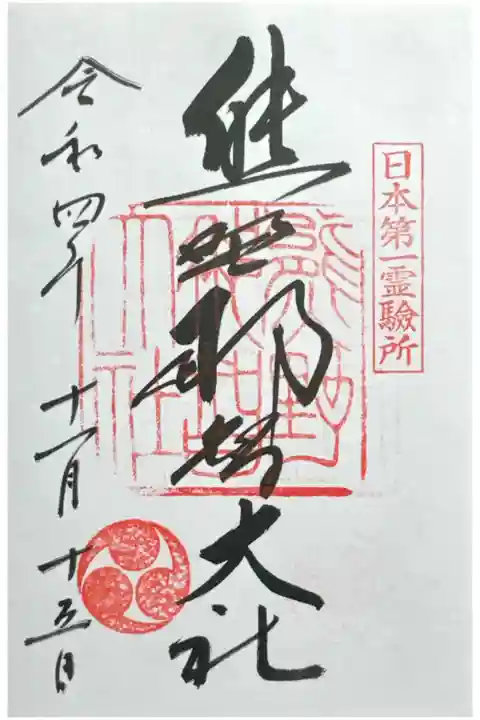 日本第一霊驗所
熊野那智大社
令和四年 十一月 十五日